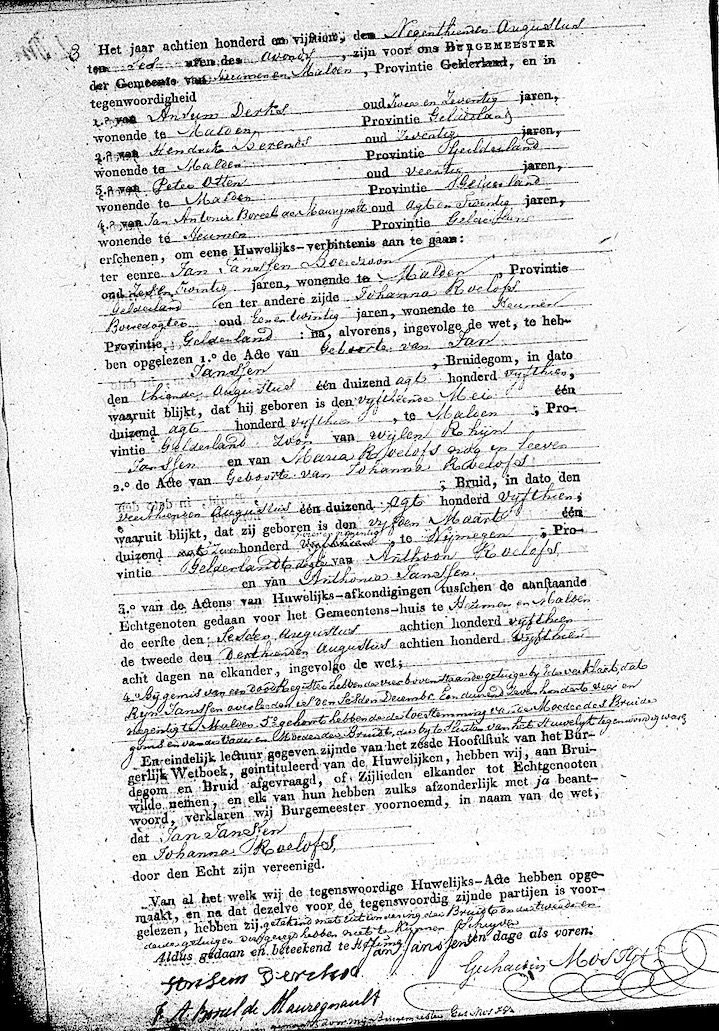 3
Het jaar achtien honderd en vijftien, den Negenthienden Augustus
ten Ses uren des Avonds, zijn voor ons BURGEMEESTER
der Gemeente van Heumen en Malden, Provintie Gelderland, en in
tegenwoordigheid
1.º van Ansum Derks oud Twee en Zeventig jaren,
wonende te Malden Provintie Gelderland
2.º van Hendrik Berends oud Zeventig jaren,
wonende te Malden Provintie Gelderland
3.º van Peter Otten oud veertig jaren,
wonende te Malden Provintie Gelderland
4.º van Jan Antonie Boreel de Mauregnault oud agt en Twintig jaren,
wonende te Heumen Provintie Gelderland
erschenen, om eene Huwelijks-verbintenis aan te gaan:
ter eenre Jan Janssen Boerezoon
oud Zes en Twintig jaren, wonende te Malden Provintie
Gelderland en ter andere zijde Johanna Roelofs
Boeredogter oud Eenentwintig jaren, wonende te Heumen
Provintie Gelderland : na, alvorens, ingevolge de wet, te heb-
ben opgelezen 1.º de Acte van Geboorte van Jan
Janssen , Bruidegom, in dato
den thiende Augustus één duizend agt honderd vyfthien,
waaruit blijkt, dat hij geboren is den vyfthiende Mei één
duizend agt honderd vyfthien , te Malden ; Pro-
vintie Gelderland Zoon van wylen Rhijn
Janssen en van Maria Roelofs nog in leeven
2.º de Acte van Geboorte van Johanna Roelofs
; Bruid, in dato den
Veerthienden Augustus één duizend Agt honderd vyfthien;
waaruit blijkt, dat zij geboren is den vyfden Maart één
duizend honderd , te Nijmegen ; Pro-
vintie Gelderland dogter van Anthoon Roelofs
en van Anthonia Janssen.
3.º van de Actens van Huwelijks-afkondigingen tusschen de aanstaande
Echtgenoten gedaan voor het Gemeentens-huis te Heumen en Malden
de eerste den Sesden Augustus achtien honderd vyfthien
de tweede den Derthienden Augustus achtien honderd vyfthien
acht dagen na elkander, ingevolge de wet;
4.º Bij gemis van een dood Register hebben de vier bovenstaande getuige by Ede verklaart, dat
Rijn Janssen overleeden is den Sesden Decembr. Een duizend Zevenhonderd vier en
negentig te Malden 5º gehoort hebbende de toestemming van de Moeder des Bruide
goms en van de Vader en Moeder der Bruidt, die by to van het Huwelijk tegenwoordig ware
En eindelijk lectuur gegeven zijnde van het zesde Hoofdstuk van het Bur-
gerlijk Wetboek, geintituleerd van de Huwelijken, hebben wij, aan Brui-
degom en Bruid afgevraagd, of Zijlieden elkander tot Echtgenooten
wilde nemen, en elk van hun hebben zulks afzonderlijk met ja beant-
woord, verklaren wij Burgemeester voornoemd, in naam van de wet,
dat Jan Janssen
en Johanna Roelofs,
door den Echt zijn vereenigd.
Van al het welk wij de tegenswoordige Huwelijks-Acte hebben opge-
maakt, en na dat dezelve voor de tegenswoordig zijnde partijen is voor-
gelezen, hebben zij getekend met uitsondering der Bruidt en de tweede en
derde getuigen voorgeevende hebben niet te kunnen schryven
Aldus gedaan en beteekend te ten dage als voren.
Jan Jansen
Ansem Dercks
Gerhardus Mos
J. A. Boreel de Mauregnault